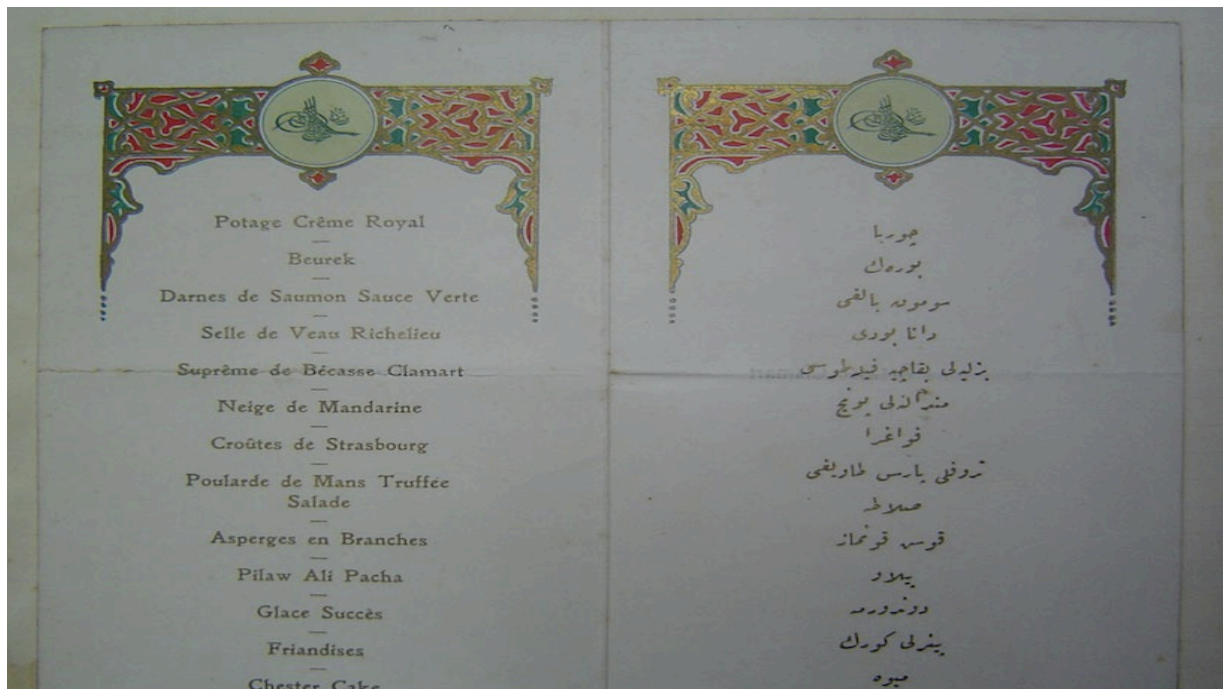 Potage Crême Royal
Beurek
Darnes de Saumon Sauce Verte
Selle de Veau Richelieu
Suprême de Bécasse Clamart
Neige de Mandarine
Croûtes de Strasbourg
Poularde de Mans Truffée
Salade
Asperges en Branches
Pilaw Ali Pacha
Glace Succès
Friandises
Chester Cake
چوربا
بورەك
سومون بالغی
دانا بودی
بزلیەلی
فیلەطوسی
مندالنەلی پونچ
فواغرا
تروفلی پارس طاووغی
صلاطه
قوش قونماز
پیلاو
دوندورمه
پینرلی كورك
میوه